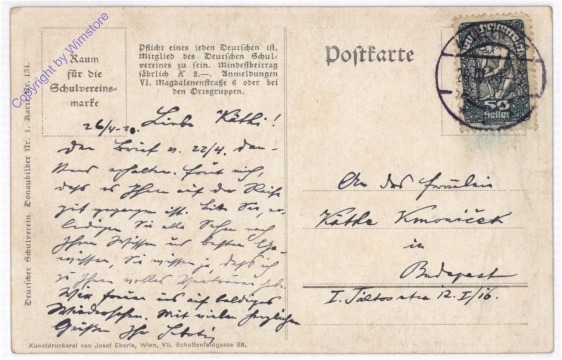 Copyright by Wimstore
Raum
für die
Schulvereins-
marke
Pflicht eines jeden Deutschen ist,
Mitglied des Deutschen Schul-
vereines zu sein. Mindestbeitrag
jährlich K 2.—. Anmeldungen
VI. Magdalenenstraße 6 oder bei
den Ortsgruppen.
Postkarte
50
Heller
Deutscher Schulverein. Donaubilder Nr. 1. Karte Nr. 151.
26/4 20. Liebe Käthi!
Den Brief v. 22/4. dan-
kend erhalten. Freut mich,
dass es Ihnen auf der Reise
gut gegangen ist. Bitte Sie, er-
ledigen Sie alle Sachen nach
Ihrem Wissen und besten Ge-
wissen, Sie wissen ja dass ich
zu Ihnen volles Vertrauen habe.
Wir freuen uns auf baldiges
Wiedersehen. Mit vielen herzlichen
Grüßen Ihr
An das Fräulein
Käthe Kmoniček
in
Budapest
I. 12. I/16.
Kunstdruckerei von Josef Eberle, Wien, VII. Schottenfeldgasse 38.